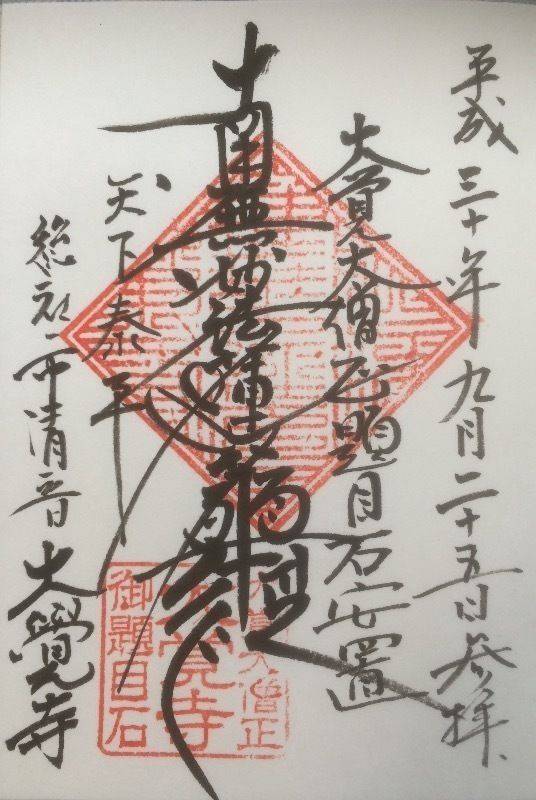 平成三十年九月二十五日参拝
大覺大僧正題目石安置
南無妙法蓮華経
天下泰平
総社市清音 大覺寺
大覚大僧正
大覚寺
御題目石